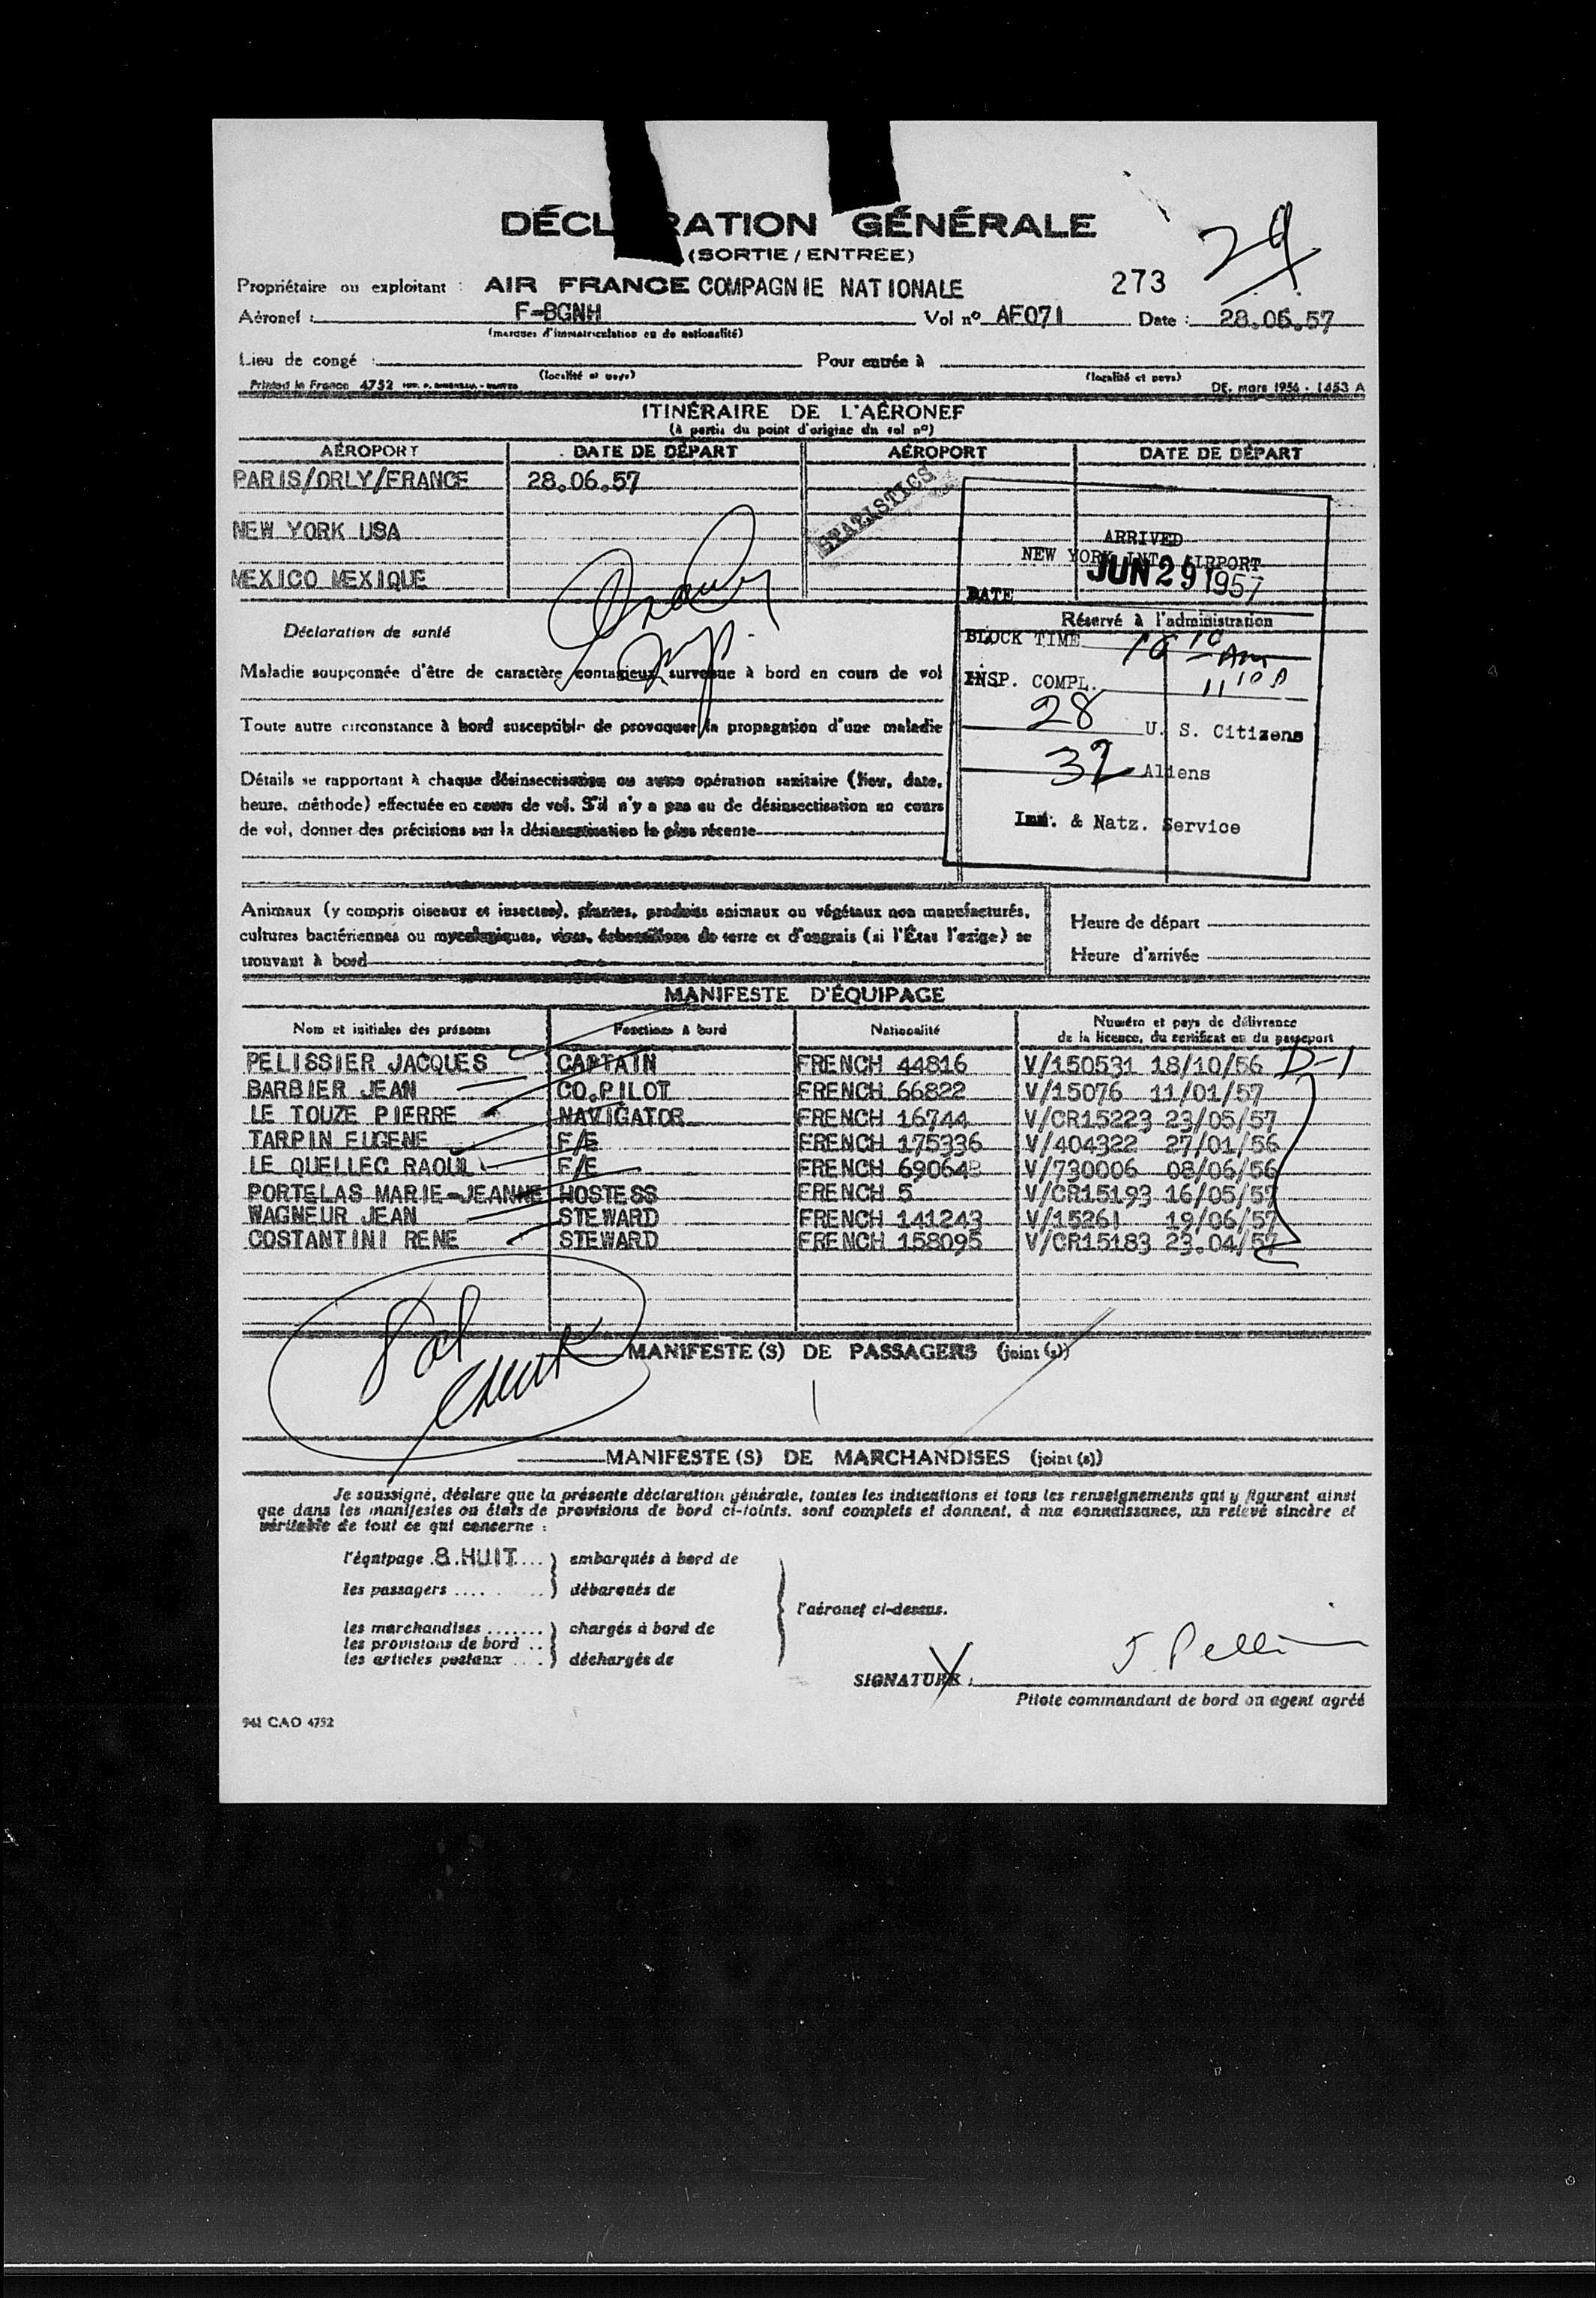 DÉCL RATION GÉNÉRALE
(SORTIE / ENTREE)
29
Propriétaire ou exploitant : AIR FRANCE COMPAGNIE NATIONALE 273
Aéronef : F-BGNH Vol nº AF071 Date : 28.06.57
(marques d'immatriculation ou de nationalité)
Lieu de congé : Pour entrée à
(localité et pays) (localité et pays)
Printed in France 4752 DE. mars 1956 - 1453 A
ITINÉRAIRE DE L'AÉRONEF
(à partir du point d'origine du vol nº)
AÉROPORT DATE DE DÉPART AÉROPORT DATE DE DÉPART
PARIS/ORLY/FRANCE 28.06.57
STATISTICS
NEW YORK USA
MEXICO MEXIQUE
ARRIVED
NEW YORK INT. AIRPORT
DATE JUN 29 1957
Réservé à l'administration
BLOCK TIME 10 10 AM
INSP. COMPL. 11 10 A
28 U. S. Citizens
32 Aliens
Imm. & Natz. Service
Déclaration de santé
Maladie soupçonnée d'être de caractère contagieux survenue à bord en cours de vol
Toute autre circonstance à bord susceptible de provoquer la propagation d'une maladie
Détails se rapportant à chaque désinsectisation ou autre opération sanitaire (lieu, date,
heure, méthode) effectuée en cours de vol. S'il n'y a pas eu de désinsectisation au cours
de vol, donner des précisions sur la désinsectisation la plus récente
Animaux (y compris oiseaux et insectes), plantes, produits animaux ou végétaux non manufacturés,
cultures bactériennes ou mycologiques, virus, échantillons de terre et d'engrais (si l'État l'exige) se
trouvant à bord
Heure de départ
Heure d'arrivée
MANIFESTE D'ÉQUIPAGE
Nom et initiales des prénoms Fonctions à bord Nationalité Numéro et pays de délivrance
de la licence, du certificat ou du passeport
PELISSIER JACQUES CAPTAIN FRENCH 44816 V/150531 18/10/56 D-1
BARBIER JEAN CO.PILOT FRENCH 66822 V/15076 11/01/57
LE TOUZE PIERRE NAVIGATOR FRENCH 16744 V/CR15223 23/05/57
TARPIN EUGENE F/E FRENCH 175336 V/404322 27/01/56
LE QUELLEC RAOUL F/E FRENCH 690648 V/730006 08/06/56
PORTELAS MARIE-JEANNE HOSTESS FRENCH 5 V/CR15193 16/05/57
WAGNEUR JEAN STEWARD FRENCH 141243 V/15261 19/06/57
COSTANTINI RENE STEWARD FRENCH 158095 V/CR15183 23.04/57
MANIFESTE (S) DE PASSAGERS (joint (s))
MANIFESTE (S) DE MARCHANDISES (joint (s))
Je soussigné, déclare que la présente déclaration générale, toutes les indications et tous les renseignements qui y figurent ainsi
que dans les manifestes ou états de provisions de bord ci-joints, sont complets et donnent, à ma connaissance, un relevé sincère et
véritable de tout ce qui concerne :
l'équipage .8.HUIT.... ) embarqués à bord de
les passagers .... ..) débarqués de
l'aéronef ci-dessus.
les marchandises ....... ) chargés à bord de
les provisions de bord ..
les articles postaux .... ) déchargés de
SIGNATURE : J. Pelli
Pilote commandant de bord ou agent agréé
941 CAO 4752